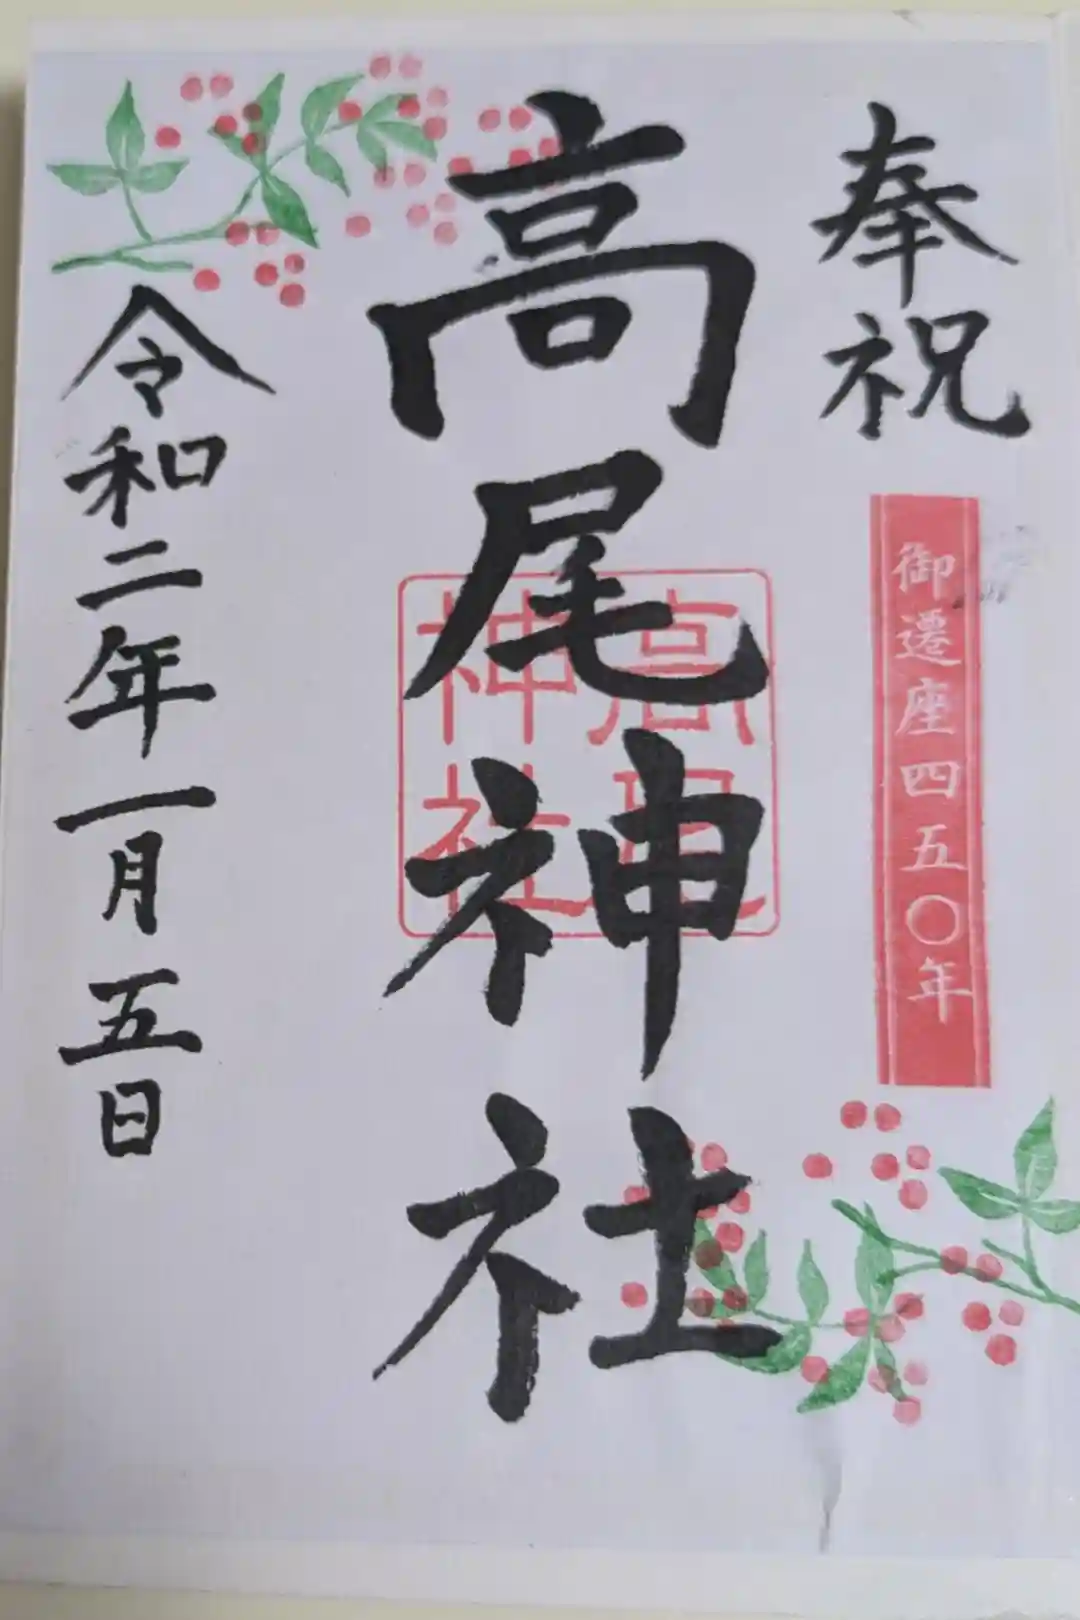 奉祝
御遷座四五〇年
高尾神社
高尾
神社
令和二年一月五日